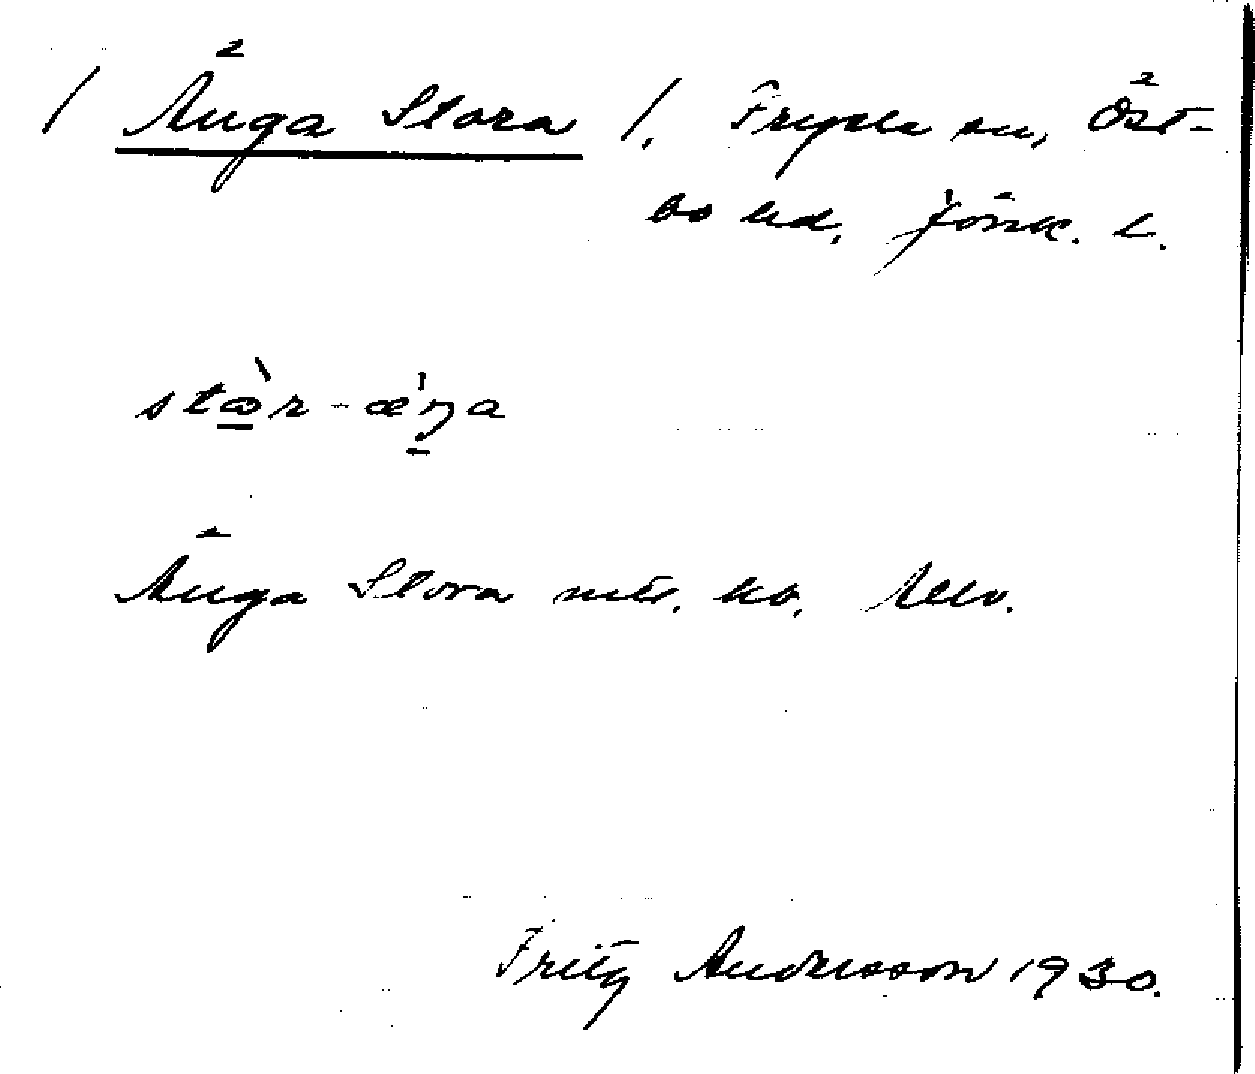 / Änga Stora /. Fryele sn, Öst-
bo hd, Jönk. l.
stòr-æ'ŋa
Änga Stora mtr. kb.
Fritz Andersson 1930.